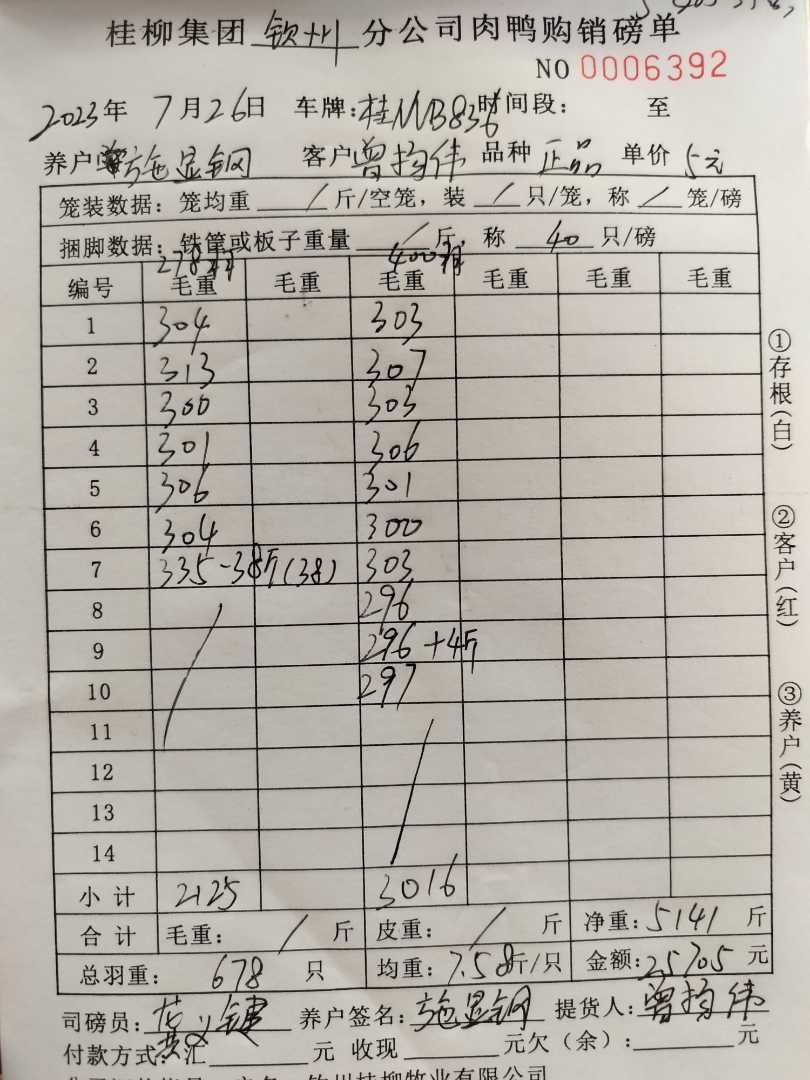 桂柳集团 钦州 分公司肉鸭购销磅单
NO 0006392
2023年 7月26日 车牌:桂MB836 时间段: 至
养户 施显钢 客户 曾 伟 品种 正品 单价 5元
笼装数据:笼均重 / 斤/空笼,装 / 只/笼,称 / 笼/磅
捆脚数据:铁筐或板子重量 / 斤,称 40 只/磅
278羽 400羽
编号 毛重 毛重 毛重 毛重 毛重 毛重
1 304 303
2 313 307
3 300 303
4 301 306
5 306 301
6 304 300
7 335-38斤(38) 303
8 / 296
9 296+4斤
10 297
11 /
12
13
14
小计 2125 3016
合计 毛重: / 斤 皮重: / 斤 净重:5141 斤
总羽重: 678 只 均重:7.58斤/只 金额:25705 元
司磅员:黄 健 养户签名:施显钢 提货人:曾 伟
付款方式:汇 元 收现 元欠(余): 元
钦州桂柳牧业有限公司
①存根(白)
②客户(红)
③养户(黄)